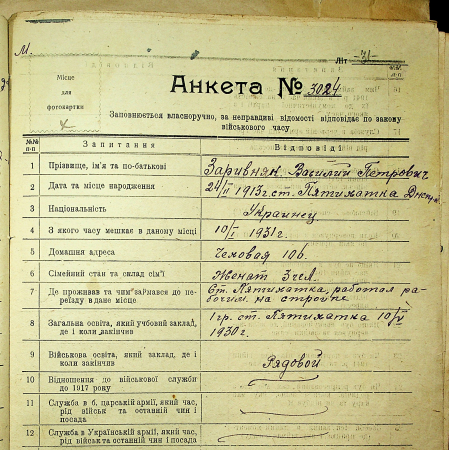 М.
Літ -71-
Місце
для
фотокартки
Анкета № 3024
Заповнюється власноручно, за неправдиві відомості відповідає по закону
військового часу
№№ п-п
Запитання
Відповіді
1 Прізвище, ім'я та по-батькові Заривняк Василий Петрович
2 Дата та місце народження 24/II 1913г. ст. Пятихатка Днепр.
3 Національність Украинец
4 З якого часу мешкає в даному місці 10/I 1931г.
5 Домашня адреса Чеховая 106.
6 Сімейний стан та склад сім'ї Женат 3 чел.
7 Де проживав та чим займався до пе- Ст. Пятихатка, работал ра-
реїзду в дане місце бочим на стройке
8 Загальна освіта, який учбовий заклад, 1гр. ст. Пятихатка 10/IV
де і коли закінчив 1930г.
9 Військова освіта, який заклад, де і
коли закінчив Рядовой
10 Відношення до військової служби
до 1917 року
11 Служба в б. царській армії, який час,
рід військ та останній чин і
посада
12 Служба в Українській армії, який час,
рід військ та останній чин і посада